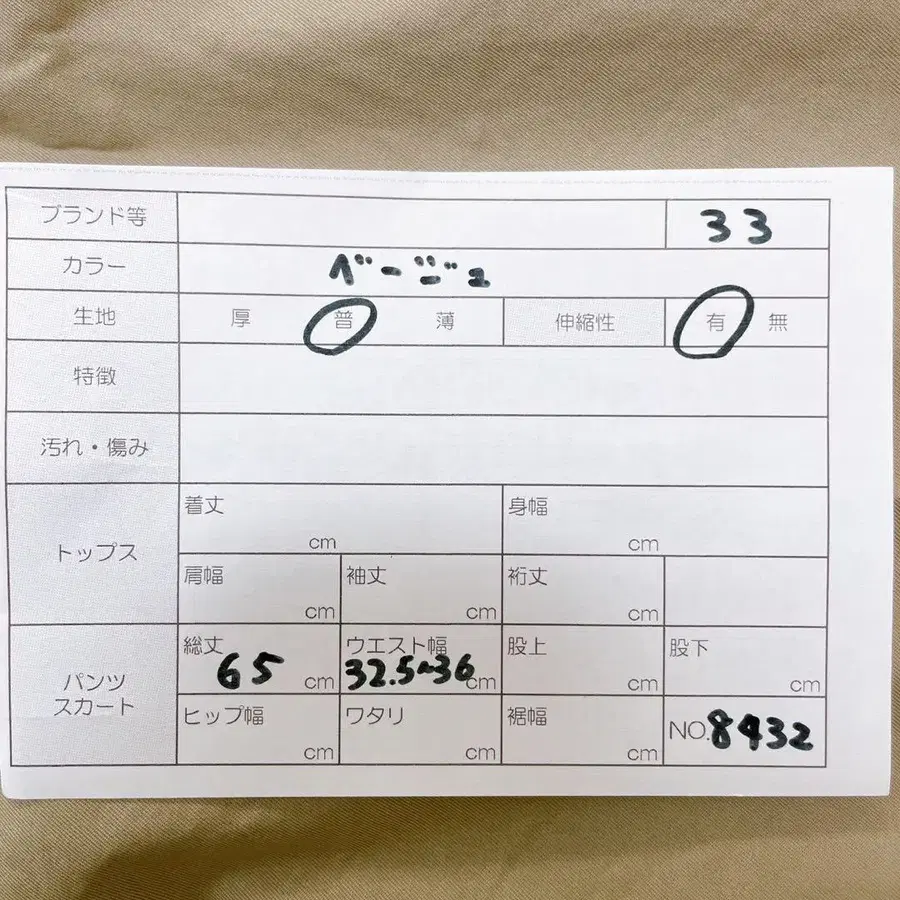 ブランド等 33
カラー ベージュ
生地 厚 普 薄 伸縮性 有 無
特徴
汚れ・傷み
トップス
着丈 cm 身幅 cm
肩幅 cm 袖丈 cm 裄丈 cm
パンツ
スカート
総丈 65 cm ウエスト幅 32.5~36 cm 股上 cm 股下 cm
ヒップ幅 cm ワタリ cm 裾幅 cm NO.8432